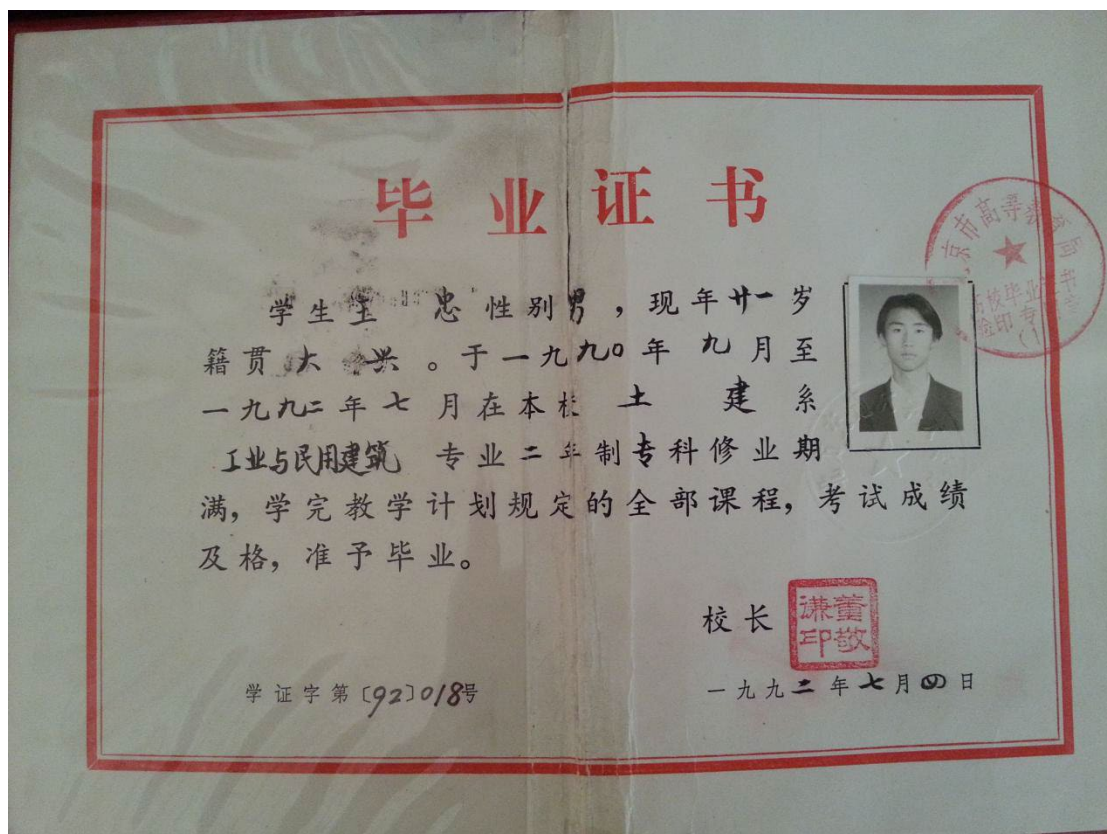 毕业证书
学生王 忠性别男，现年廿一岁
籍贯大兴。于一九九〇年九月至
一九九二年七月在本校土建系
工业与民用建筑专业二年制专科修业期
满，学完教学计划规定的全部课程，考试成绩
及格，准予毕业。
校长
董敬谦印
学证字第〔92〕018号
一九九二年七月四日
京市高等教育局
高校毕业
验印专